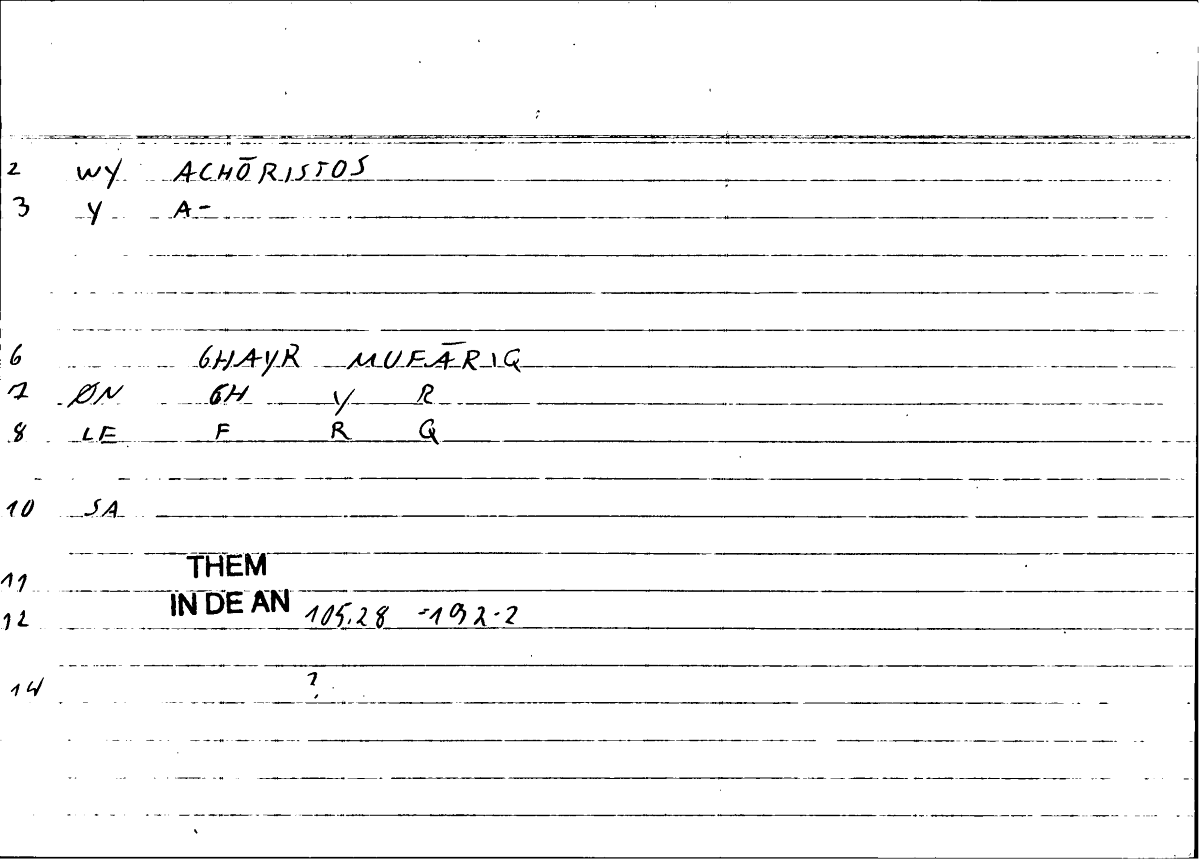 2 WY ACHŌRISTOS
3 Y A-
6 GHAYR MUFĀRIQ
7 ØN GH Y R
8 LE F R Q
10 SA
THEM
11
IN DE AN 105.28 =192.2
12
14 ?